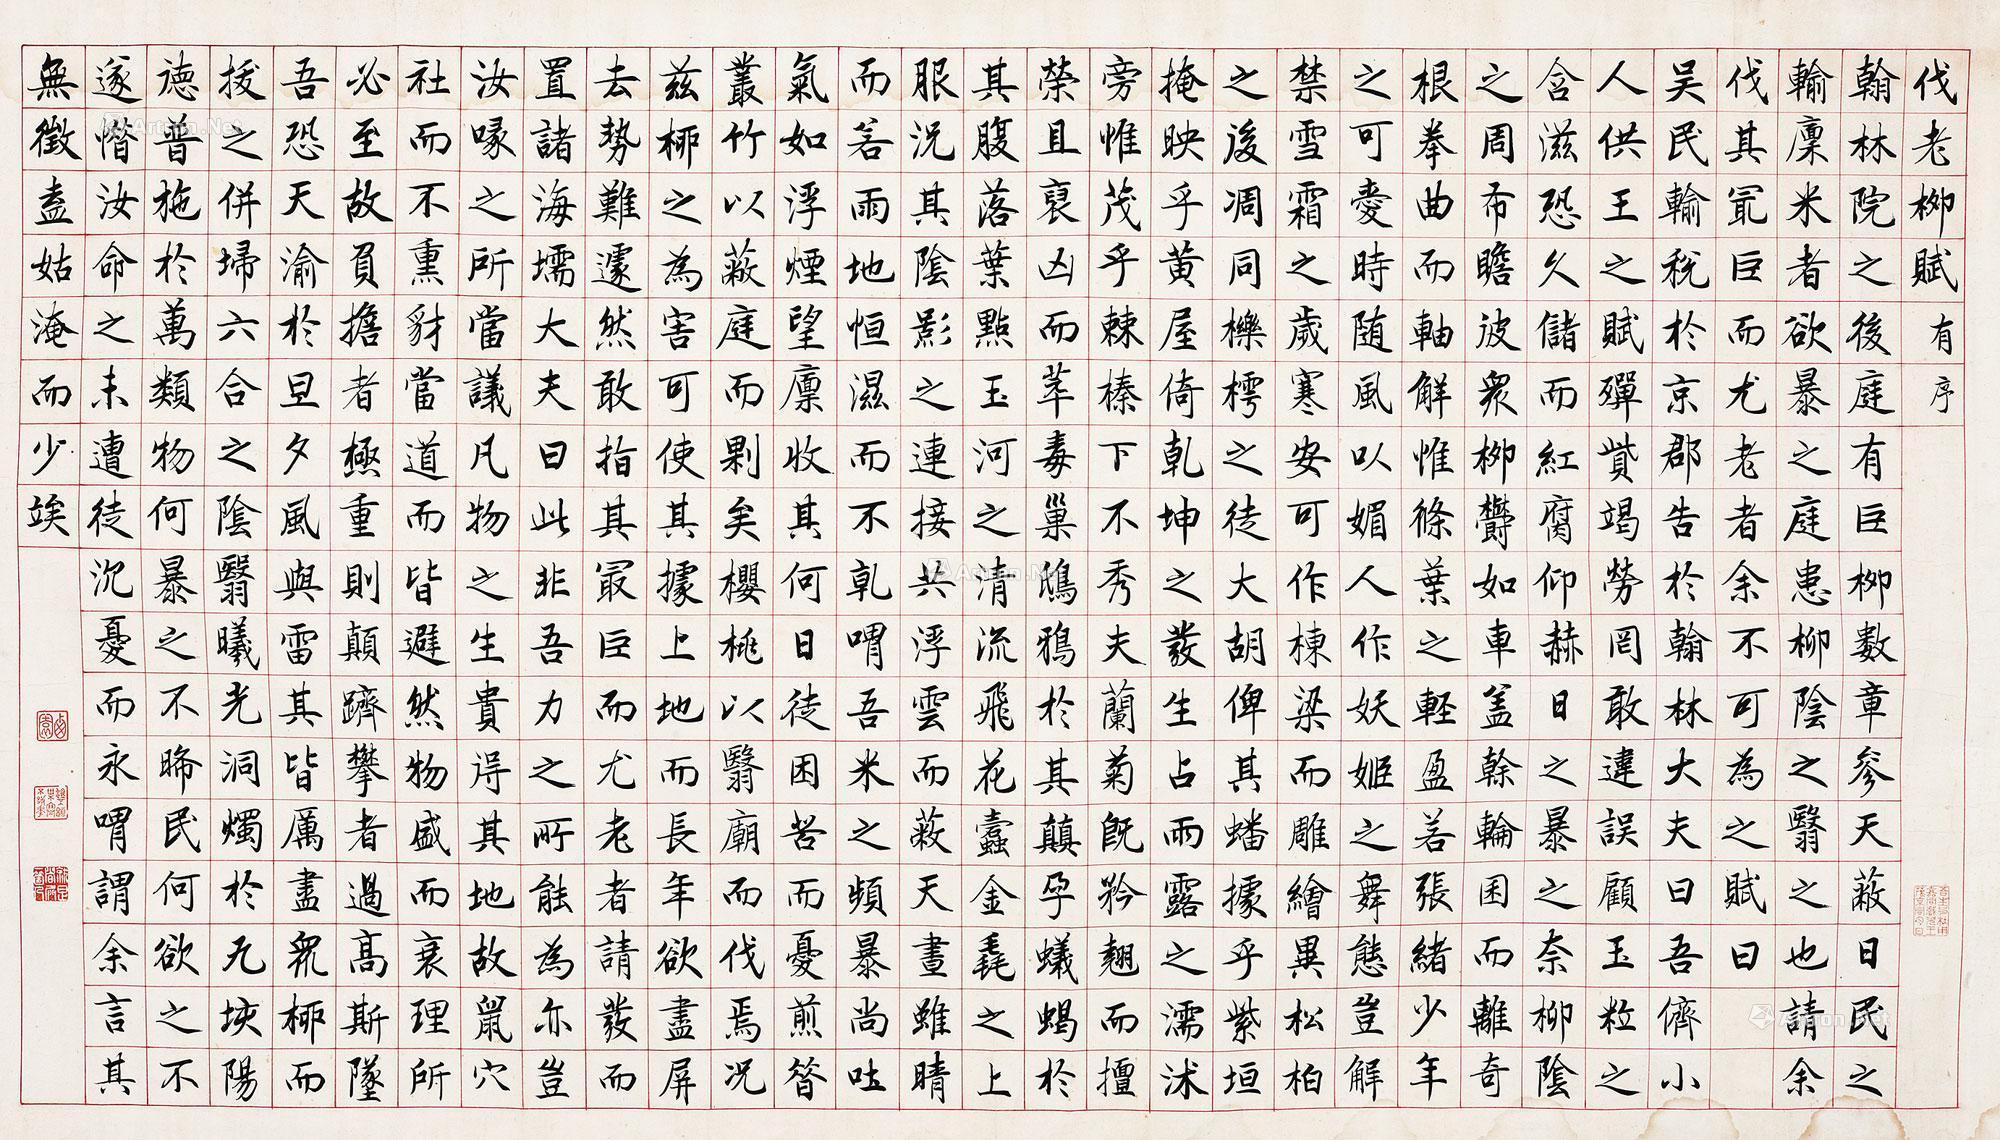 伐老柳賦有序
翰林院之後庭有巨柳數章參天蔽日民之
輸廩米者欲暴之庭患柳陰之翳之也請余
伐其冣巨而尤老者余不可為之賦曰
吴民輸税於京郡告於翰林大夫曰吾儕小
人供王之賦殫貲竭勞罔敢違誤顧玉粒之
含滋恐久儲而紅腐仰赫日之暴之奈柳陰
之周布瞻彼衆柳欝如車盖榦輪囷而離奇
根拳曲而軸解惟條葉之輕盈若張緒少年
之可愛時随風以媚人作妖姬之舞態豈解
禁雪霜之歲寒安可作棟梁而雕繪異松柏
之後凋同櫟樗之徒大胡俾其蟠據乎紫垣
掩映乎黄屋倚乾坤之發生占雨露之濡沐
旁惟茂乎棘榛下不秀夫蘭菊既矜翘而擅
榮且裒凶而萃毒巢鴟鴉於其顛孕蟻蝎於
其腹落葉點玉河之清流飛花蠹金毳之上
服況其陰影之連接共浮雲而蔽天晝雖晴
而若雨地恒濕而不乾喟吾米之頻暴尚吐
氣如浮煙望廩收其何日徒困苦而憂煎簪
叢竹以蔽庭而剿矣櫻桃以翳廟而伐焉况
兹栁之為害可使其據上地而長年欲盡屏
去勢難遽然敢指其冣巨而尤老者請發而
置諸海壖大夫曰此非吾力之所能為亦豈
汝喙之所當議凡物之生貴得其地故鼠穴
社而不熏豺當道而皆避然物盛而衰理所
必至故負擔者極重則顛躋攀者過高斯墜
吾恐天渝於旦夕風與雷其皆厲盡衆栁而
拔之併埽六合之陰翳曦光洞燭於九垓陽
德普施於萬物何暴之不晞民何欲之不
遂惜汝命之未遭徒沉憂而永喟謂余言其
無徵盍姑淹而少竢